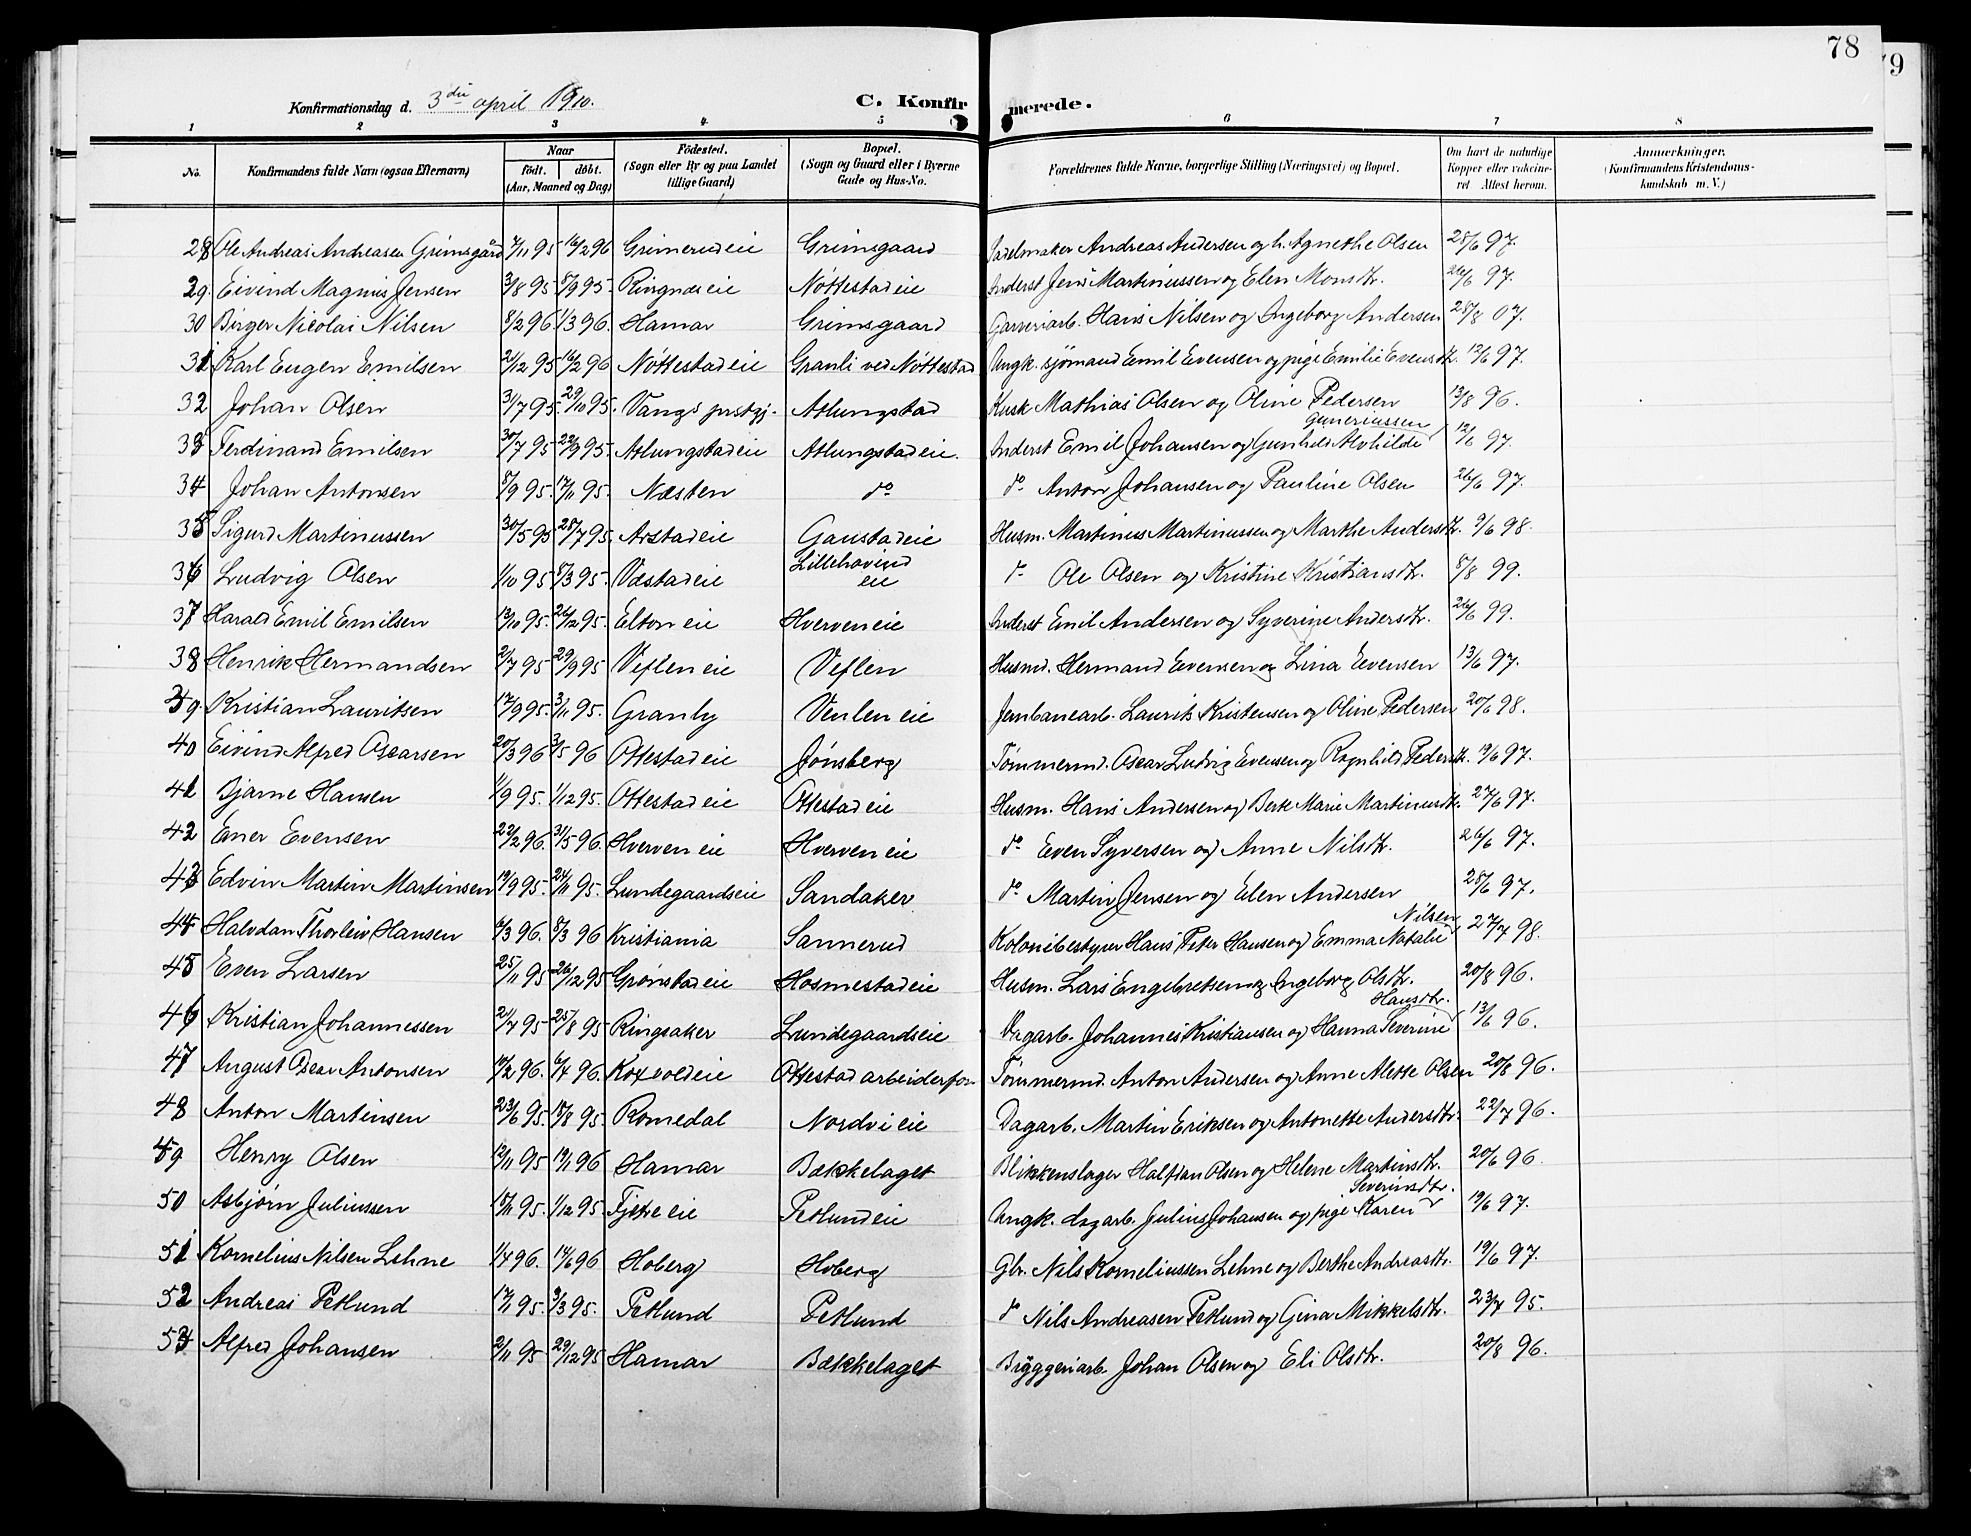 78
79
Konfirmationsdag d. 3die april 1910.
C. Konfirmerede.
1 2 3 4 5 6 7 8
No. | Konfirmandens fulde Navn (ogsaa Efternavn) | Naar født. døbt. (Aar, Maaned og Dag) | Fødested. (Sogn eller By og paa Landet tillige Gaard) | Bopæl. (Sogn og Gaard eller i Byerne Gade og Hus-No. | Forældrenes fulde Navne, borgerlige Stilling (Næringsvei) og Bopæl. | Om havt de naturlige Kopper eller vakcineret. Attest herom. | Anmærkninger. (Konfirmandens Kristendomskundskab m. V.)
28 Ole Andreas Andreasen Grimsgård 7/11 95 16/2 96 Grimerudeie Grimsgaard Sadelmaker Andreas Andersen og h. Agnethe Olsen 28/6 97.
29. Eivind Magnus Jensen 3/8 95 8/9 95. Ringnæseie Nøttestadeie Inderst Jens Martinussen og Elen Monsdtr. 26/6 97.
30 Birger Nicolai Nilsen 8/2 96 1/3 96. Hamar Grimsgaard Garveriarb. Hans Nilsen og Ingeborg Andersen 28/8 07.
31 Karl Eugen Emilsen 21/12 95 16/2 96 Nøttestadeie Granli ved Nøttestad Ungk. sjømand Emil Evensen og pige Emilie Evensdtr. 12/6 97.
32 Johan Olsen 31/7 95. 29/10 95. Vangs prstgj. Atlungstad Kusk Mathias Olsen og Oline Pedersen 13/8 96.
33 Ferdinand Emilsen 30/7 95 22/9 95. Atlungstadeie Atlungstadeie. Inderst Emil Johansen og Gunhild Alvhilde Guneriussen 12/6 97.
34 Johan Antonsen 8/9 95. 17/11 95. Næsten do do Anton Johansen og Pauline Olsen 26/6 97.
35 Sigurd Martinussen 30/5 95 28/7 95. Arstadeie Gaustadeie Husm. Martinus Martinussen og Marthe Andersdtr. 9/6 98.
36 Ludvig Olsen 1/10 95 8/3 95. Vastadeie Lillehovind eie do Ole Olsen og Kristine Kristiansdtr. 8/8 99.
37 Harald Emil Emilsen 13/10 95. 26/12 95. Elton eie Hverveneie Inderst Emil Andersen og Syverine Andersdtr. 26/6 99.
38 Henrik Hermandsen 2/7 95 29/9 95 Veflen eie Veflen Husmd. Hermand Evensen og Lina Evensen 13/6 97.
39. Kristian Lauritsen 17/9 95. 3/11 95. Granby Venlen eie Jernbanearb. Laurits Kristensen og Oline Pedersen 20/6 98.
40 Eivind Alfred Oscarsen 20/3 96 3/5 96 Ottestadeie Jønsberg Tømmermd. Oscar Ludvig Evensen og Ragnhild Pedersdtr. 19/6 97.
41 Bjarne Hansen 1/9 95. 1/12 95. Ottestadeie Ottestadeie Husm. Hans Andersen og Berte Marie Martinusdtr. 27/6 97.
42 Ener Evensen 22/2 96. 31/5 96. Hverven eie Hverven eie do Even Syversen og Anne Nilsdtr. 26/6 97.
43 Edvin Martin Martinsen 19/9 95. 24/11 95. Lundegaardseie Sandaker do Martin Jensen og Elen Andersen 28/6 97.
44 Halvdan Thorleiv Hansen 6/3 96. 8/3 96 Kristiania Sannerud Kolonibestyrer Hans Peter Hansen og Emma Natalie Nilsen 27/7 98.
45 Even Larsen 25/11 95 26/12 95 Grønstadeie Hosmestadeie Husm. Lars Engebretsen og Ingeborg Olsdtr. 20/8 96.
46 Kristian Johannessen 21/7 95 25/8 95 Ringsaker Lundegaardseie Dagarb. Johannes Kristiansen og Hanna Severine Hansdtr. 13/6 96.
47 August Oscar Antonsen 10/2 96. 6/4 96. Koxvoldeie Ottestad arbeiderfor. Tømmermd. Anton Andersen og Anne Alette Olsen 20/8 96.
48 Anton Martinsen 23/6 95. 18/8 95. Romedal Nordvieie Dagarb. Martin Eriksen og Antonette Andersdtr. 22/7 96.
49 Henry Olsen 12/11 95 19/1 96 Hamar Bækkelaget Blikkenslager Halfdan Olsen og Helene Martinsdtr. 20/6 96.
50 Asbjørn Juliussen 18/11 95. 1/12 95. Fjetreeie Petlundeie Ungk. dagarb. Julius Johansen og pige Karen Severinsdtr. 19/6 97.
51 Kornelius Nilsen Lehne 1/4 96. 14/6 96 Hoberg Hoberg Gbr. Nils Korneliussen Lehne og Berthe Andreasdtr. 19/6 97.
52 Andreas Petlund 17/1 95. 3/3 95. Petlund Petlund do Nils Andreasen Petlund og Gina Mikkelsdtr. 23/7 95.
53 Alfred Johansen 2/11 95 29/12 95 Hamar Bækkelaget Bryggeriarb. Johan Olsen og Eli Olsdtr. 20/8 96.